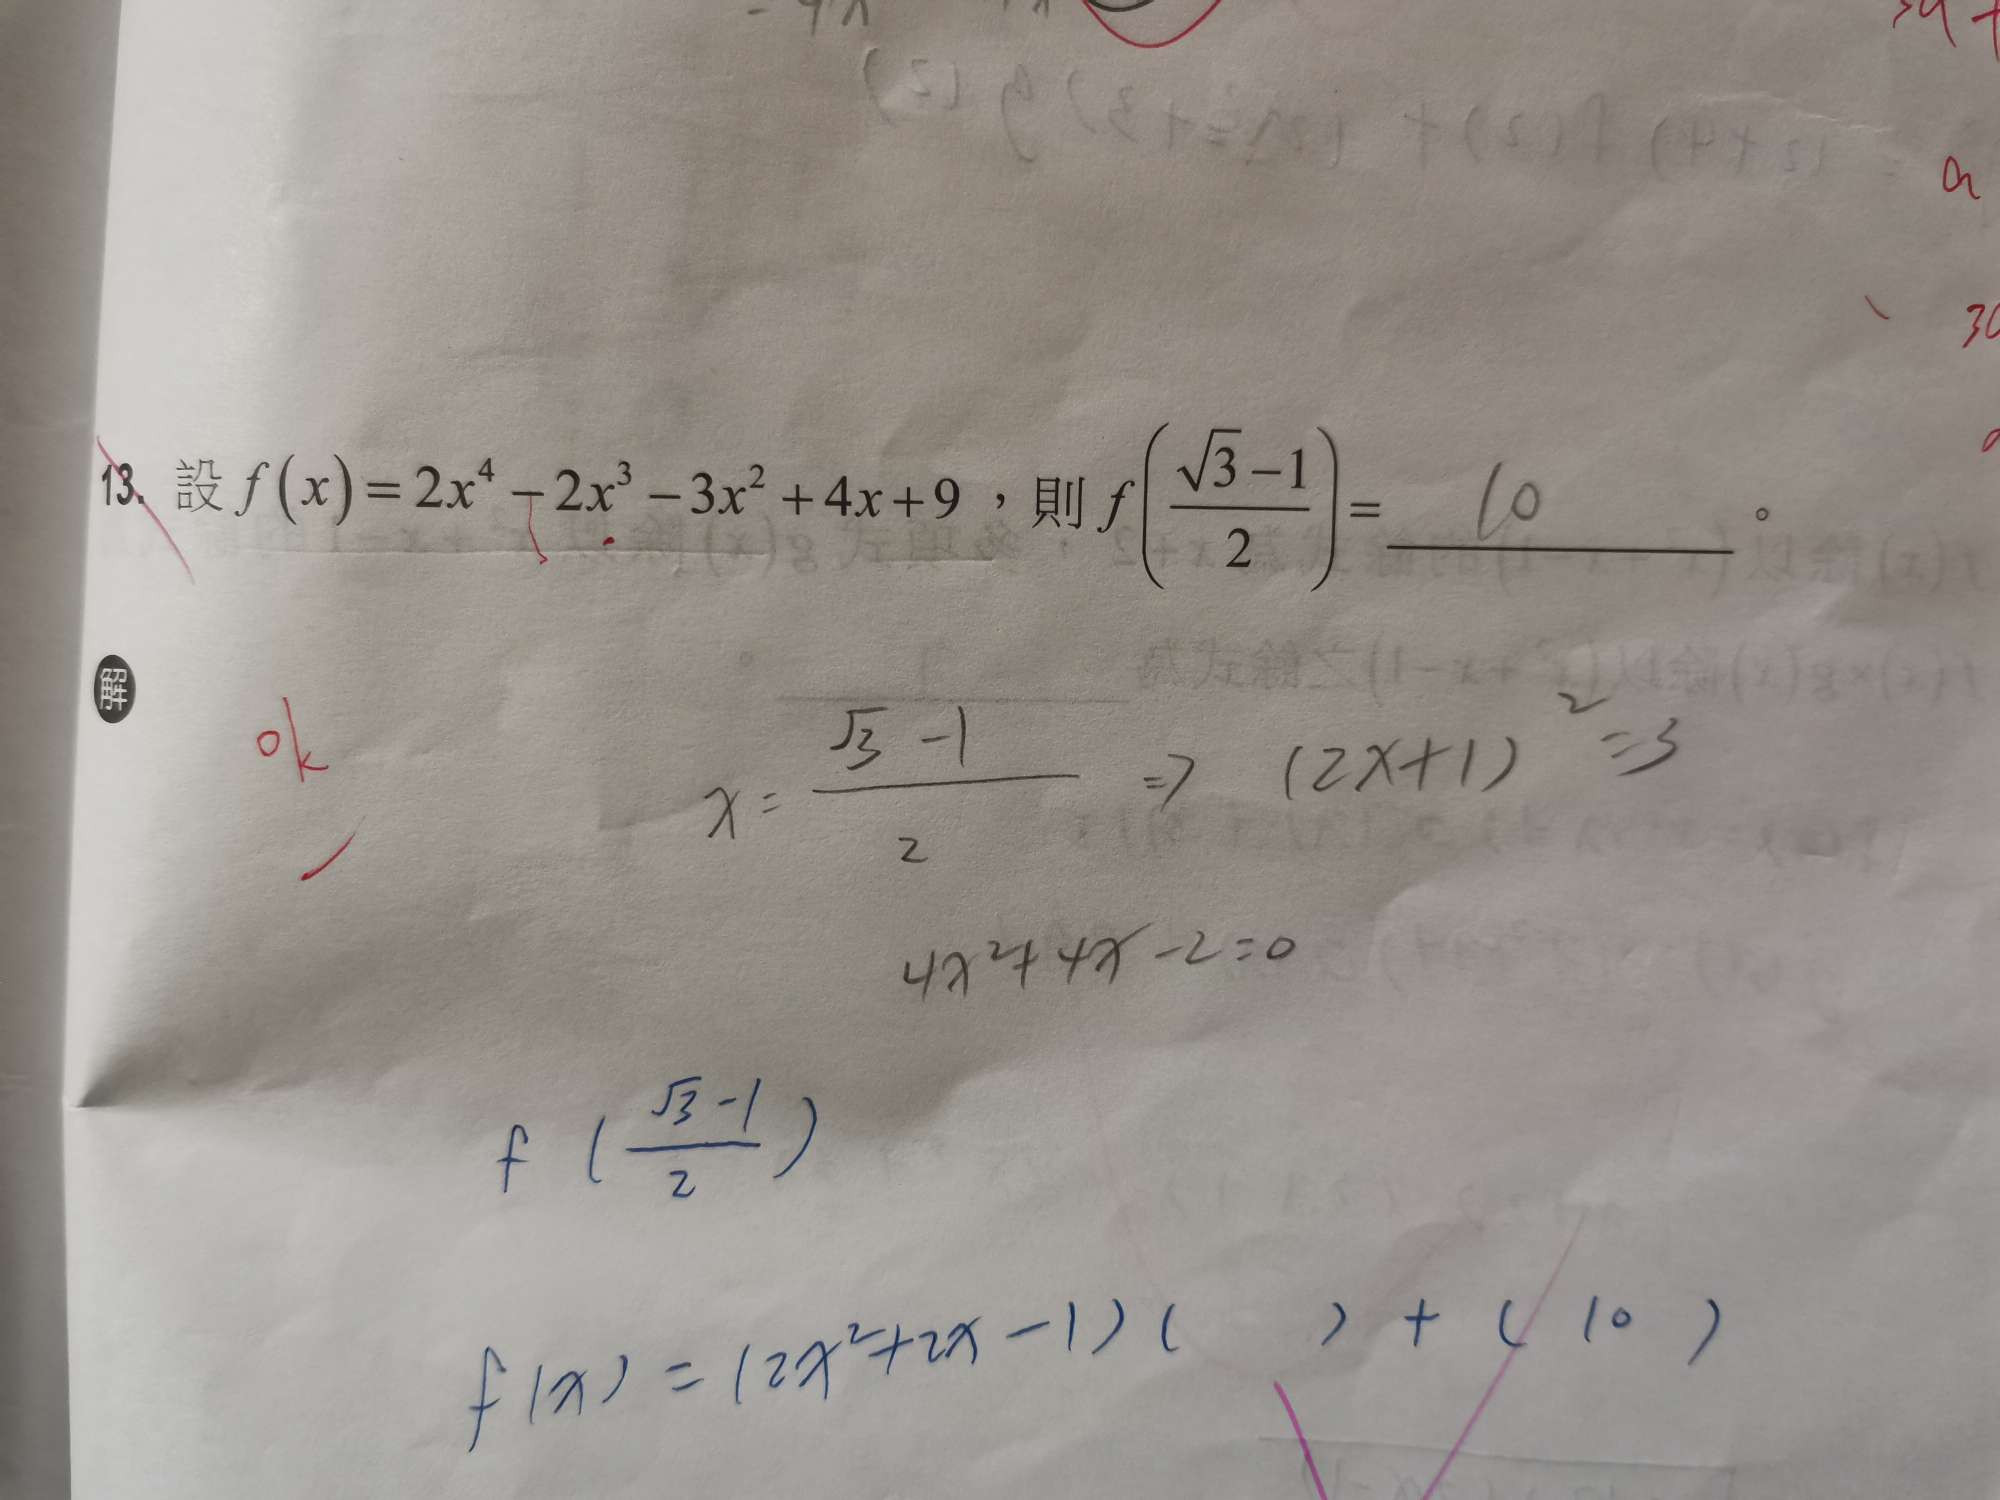 13. 設 f(x)=2x⁴-2x³-3x²+4x+9，則 f((√3-1)/2)= 10 。
解
ok
x = (√3-1)/2 => (2x+1)² = 3
4x²+4x-2=0
f((√3-1)/2)
f(x) = (2x²+2x-1)( ) + ( 10 )